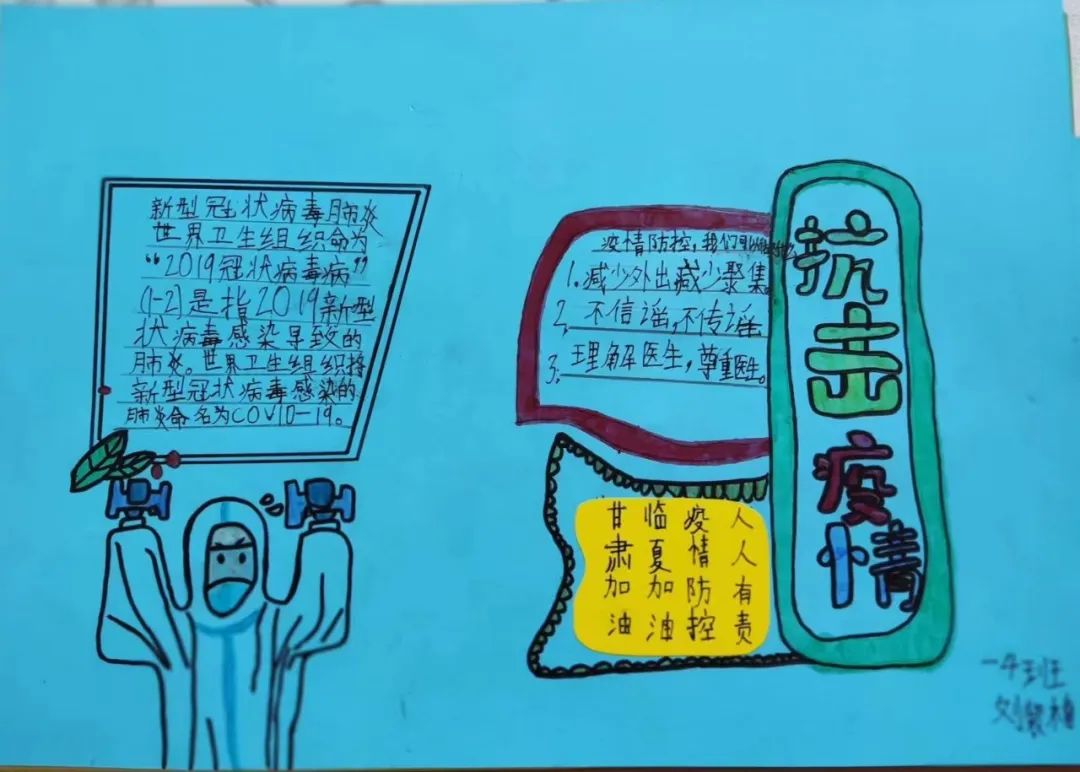 新型冠状病毒肺炎
世界卫生组织命为
“2019冠状病毒病”
(1-2)是指2019新型
状病毒感染导致的
肺炎。世界卫生组织将
新型冠状病毒感染的
肺炎命名为COVID-19。
疫情防控，我们可以做什么
1.减少外出减少聚集。
2.不信谣，不传谣
3.理解医生，尊重医生。
抗击疫情
人人有责
疫情防控
临夏加油
甘肃加油
一4班
刘